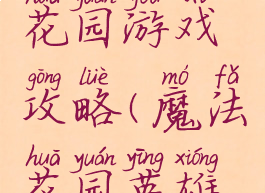 huā yuán yóu xì
花园游戏
gōng lüè mó fǎ
攻略(魔法
huā yuán yīng xióng
花园英雄